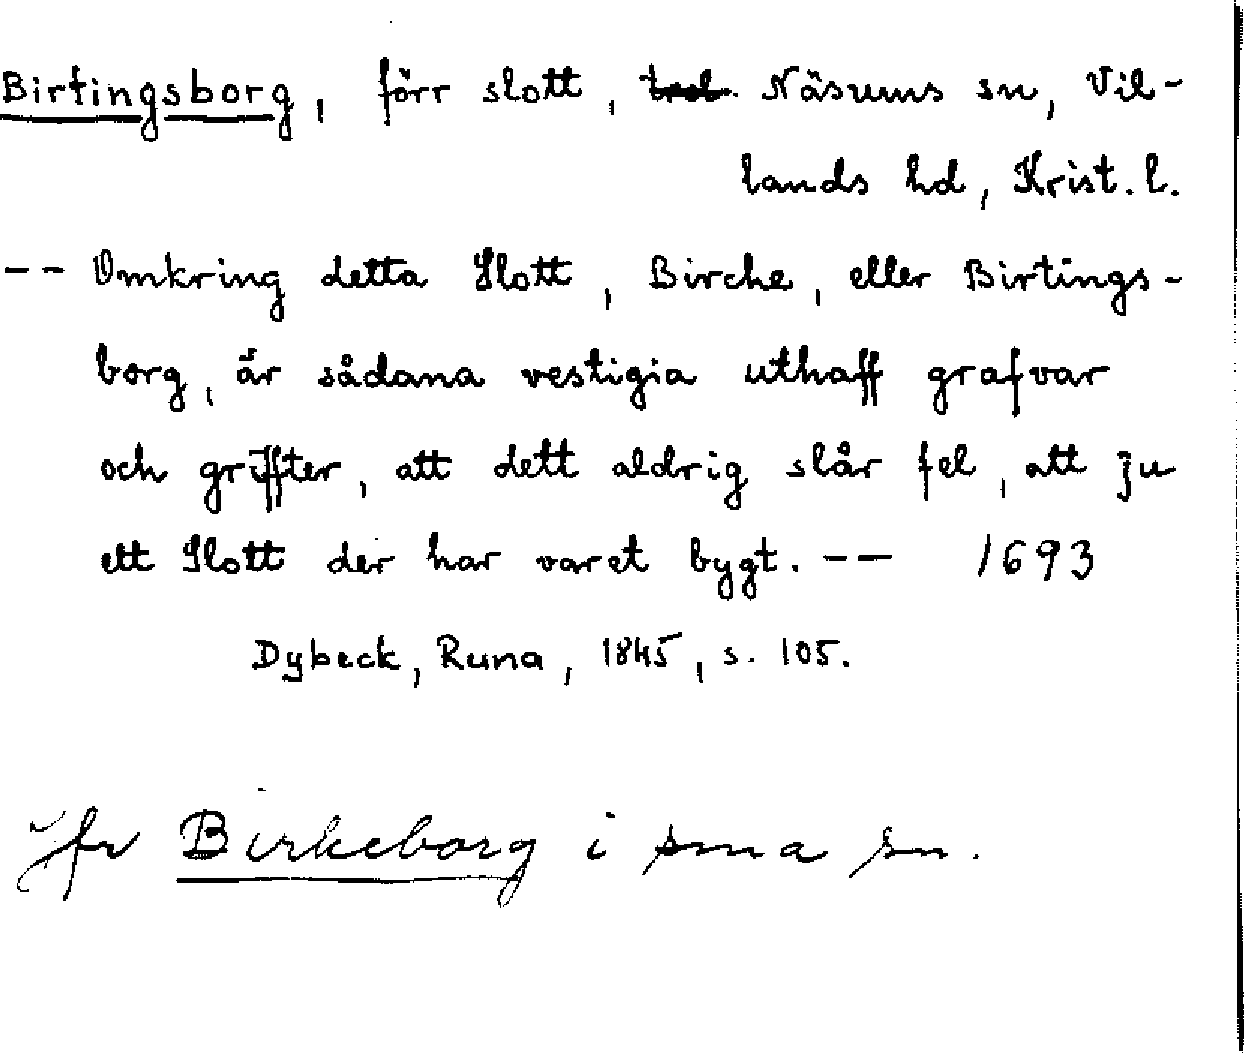 Birtingsborg, förr slott, Näsums sn, Vil-
lands hd, Krist. l.
-- Omkring detta Slott, Birche, eller Birtings-
borg, är sådana vestigia uthaff grafvar
och griffter, att dett aldrig slår fel, att ju
ett Slott der har varet bygt. -- 1693
Dybeck, Runa, 1845, s. 105.
Jfr Birkeborg i sma sn.